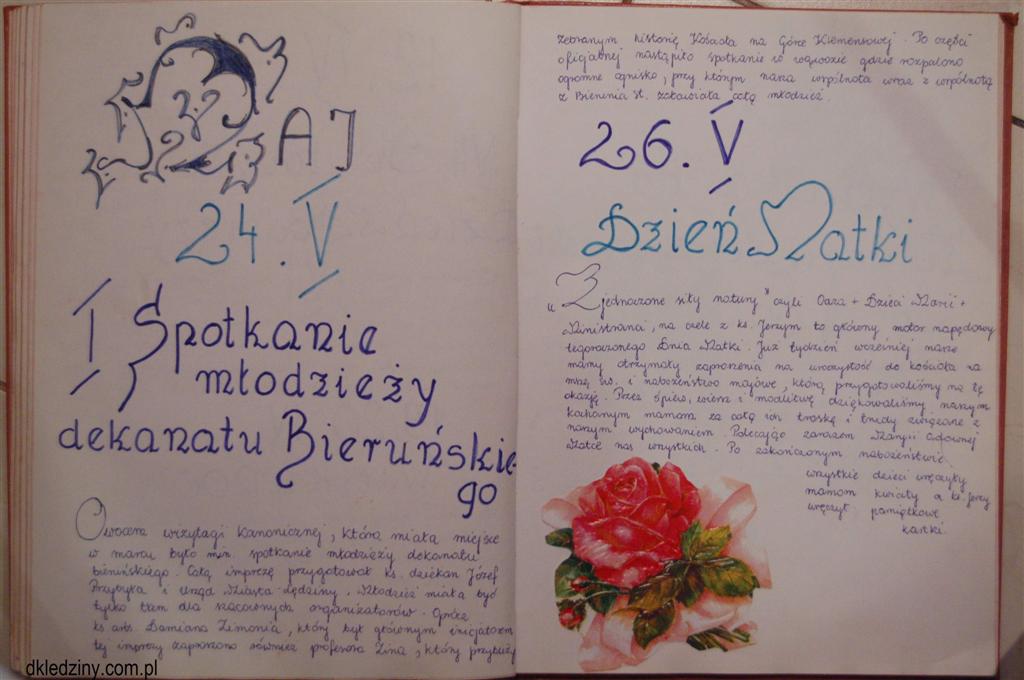 MAJ
24.V
I Spotkanie
młodzieży
dekanatu Bieruńskie-
go
Owocem wizytacji kanonicznej, która miała miejsce
w marcu było m.in. spotkanie młodzieży dekanatu
bieruńskiego. Całą imprezę przygotował ks. dziekan Józef
Przybyła i Urząd Miasta Lędziny. Młodzież miała być
tylko tłem dla szacownych organizatorów. Oprócz
ks. arb. Damiana Zimonia, który był głównym inicjatorem
tej imprezy zaproszono również profesora Zina, który przybliży
zebranym historię Kościoła na Górze Klemensowej. Po części
oficjalnej nastąpiło spotkanie w ogrodzie gdzie rozpalono
ogromne ognisko, przy którym nasza wspólnota wraz z wspólnotą
z Bierunia St. zabawiała całą młodzież.
26.V
Dzień Matki
"Zjednoczone siły natury" czyli Oaza + Dzieci Marii +
Ministranci, na czele z ks. Jerzym to główny motor napędowy
tegorocznego Dnia Matki. Już tydzień wcześniej nasze
mamy otrzymały zaproszenia na uroczystość do kościoła na
mszę św. i nabożeństwo majowe, które przygotowaliśmy na tę
okazję. Przez śpiew, wiersz i modlitwę dziękowaliśmy naszym
kochanym mamom za całą ich troskę i trudy związane z
naszym wychowaniem. Polecając zarazem Maryji Cudownej
Matce nas wszystkich. Po zakończonym nabożeństwie
wszystkie dzieci wręczyły
mamom kwiaty a ks. Jerzy
wręczył pamiątkowe
kartki.
dkledziny.com.pl